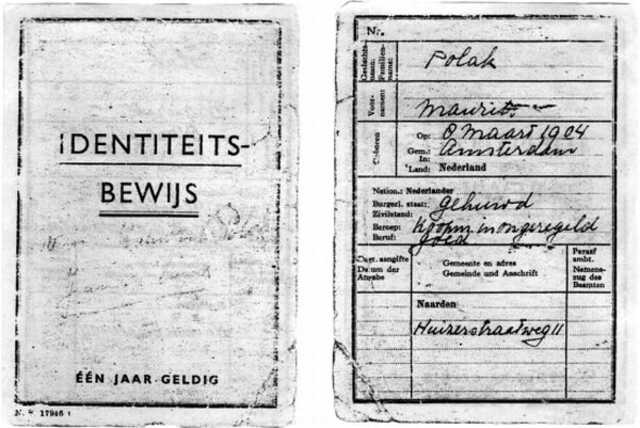 IDENTITEITS-
BEWIJS
ÉÉN JAAR GELDIG
Nr.
Geslachts-
naam: Familien-
name:
Polak
Voor-
nament
Maurits
Geboren
Op: 8 Maart 1904
Gem.: Amsterdam
In:
Land: Nederland
Nation.: Nederlander
Burgerl. staat: gehuwd
Zivilstand:
Beroep: Koopm. in ongeregeld
Beruf: goed
Dat. aangifte
Datum der
Angabe
Gemeente en adres
Gemeinde und Anschrift
Paraaf
ambt.
Namens-
zug des
Beamten
Naarden
Huizerstraatweg 11